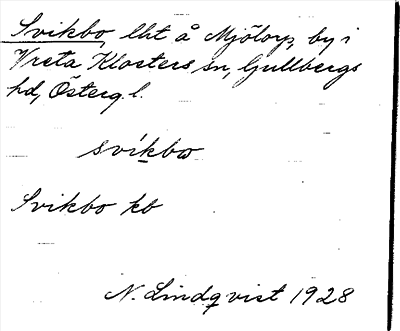 Svikbo, lht å Mjölorp, by i
Vreta Klosters sn, Gullbergs
hd, Österg. l.
svíkbω
Svikbo kb
N. Lindqvist 1928